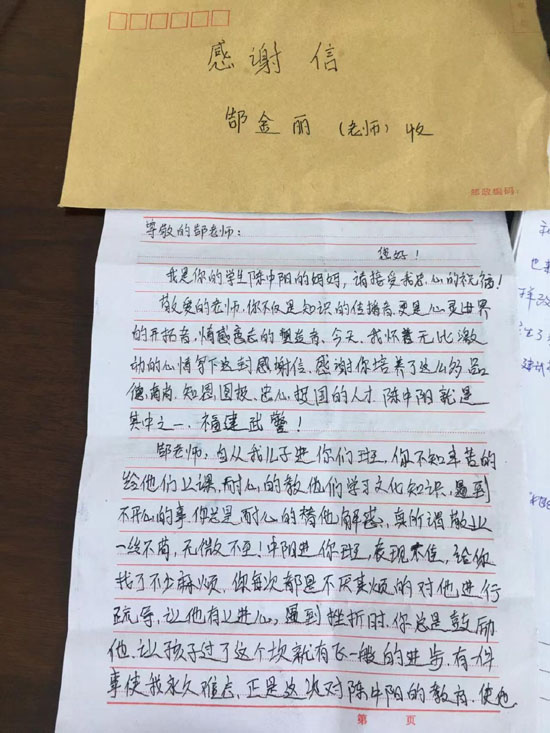 感谢信
郜金丽（老师）收
邮政编码：
尊敬的郜老师：
您好！
我是你的学生陈中阳的妈妈，请接受我忠心的祝福！
敬爱的老师，你不仅是知识的传播者，更是心灵世界
的开拓者，情感意志的塑造者、今天、我怀着无比激
动的心情写下这封感谢信、感谢你培养了这么多品
德高尚、知恩图报、忠心报国的人才。陈中阳就是
其中之一、福建武警！
郜老师，自从我儿子进你们班，你不知辛苦的
给他们上课，耐心的教他们学习文化知识，遇到
不开心的事、你总是耐心的替他解惑、真所谓敬业
一丝不苟，无微不至！中阳进你班，表现不佳，给你
找了不少麻烦，你每次都是不厌其烦的对他进行
疏导、让他有上进心，遇到挫折时、你总是鼓励
他、让孩子过了这个坎就有飞一般的进步、有一件
事使我永久难忘、正是这次对陈中阳的教育、使他
第 页